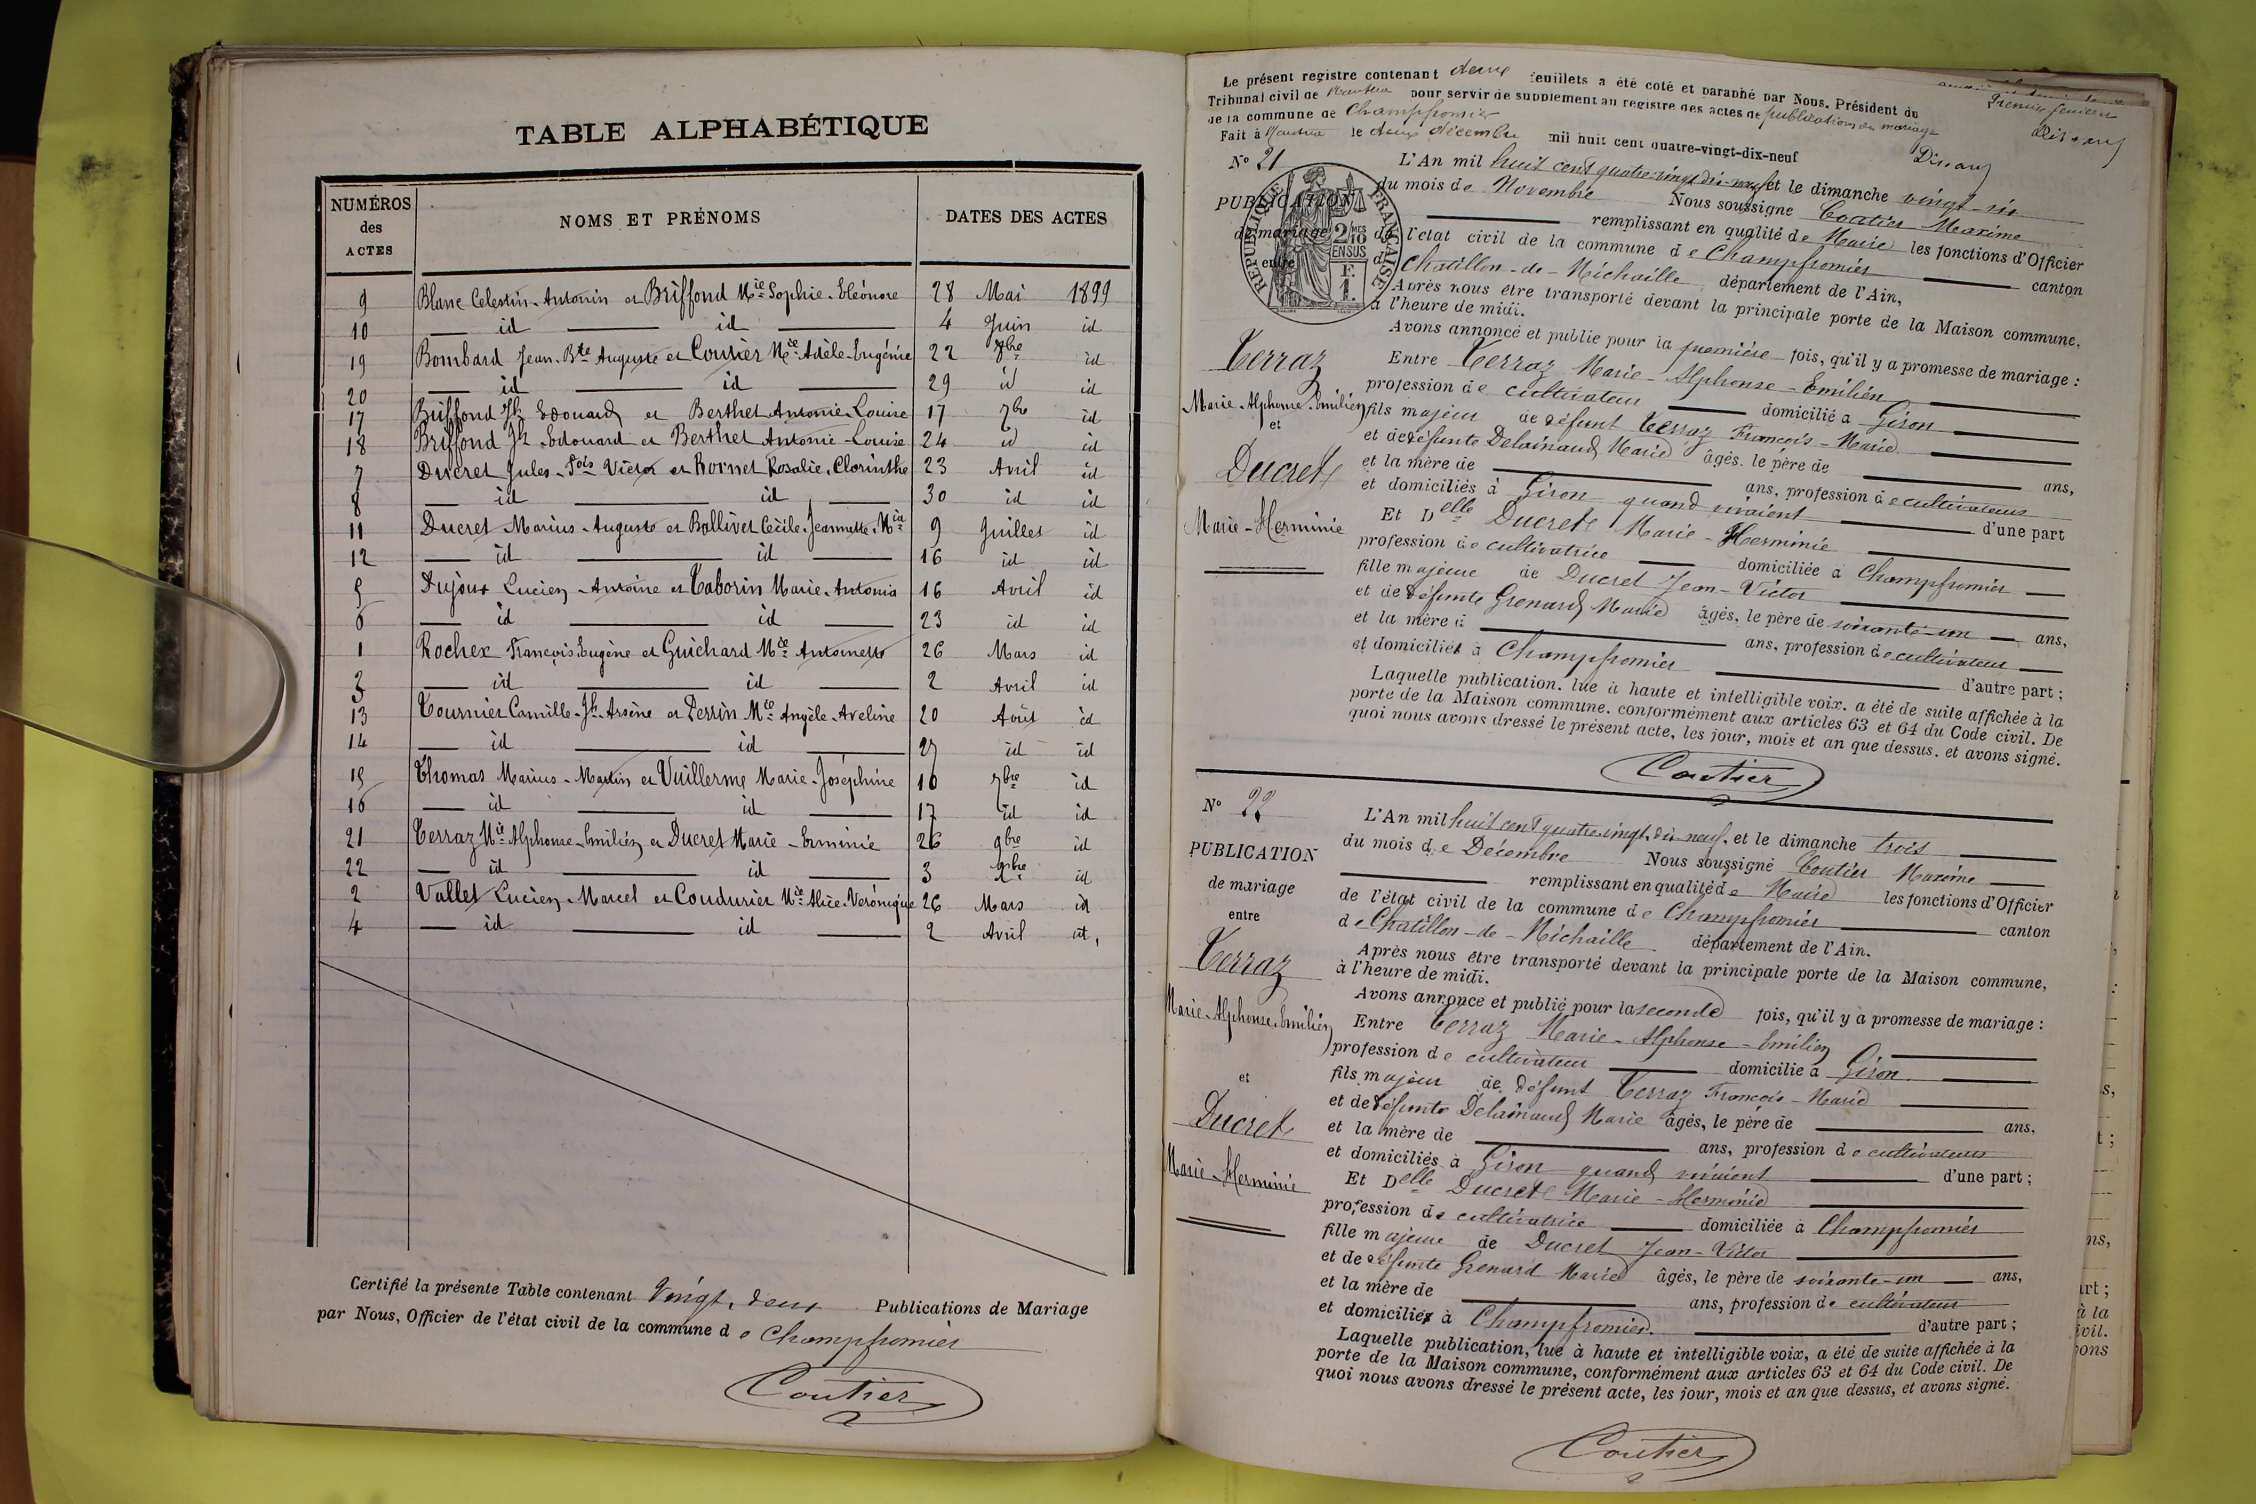 TABLE ALPHABÉTIQUE
NUMÉROS des ACTES NOMS ET PRÉNOMS DATES DES ACTES
9 Blanc Celestin-Antonin et Briffond Mie Sophie-Eléonore 28 Mai 1899
10 — id — id — 4 Juin id
19 Bombard Jean-Bte Auguste et Coutier Mie Adèle-Eugénie 22 8bre id
20 — id — id — 29 id id
17 Briffond Jh Edouard et Berthet Antonie-Louise 17 7bre id
18 Briffond Jh Edouard et Berthet Antonie-Louise 24 id id
7 Ducret Jules-Fois Victor et Rornet Rosalie-Clorinthe 23 Avril id
8 — id — id — 30 id id
11 Ducret Marius-Auguste et Ballivet Cécile-Jeannette-Mie 9 Juillet id
12 — id — id — 16 id id
5 Dujoux Lucien-Antoine et Taborin Marie-Antonia 16 Avril id
6 — id — id — 23 id id
1 Rochex François Eugène et Guichard Mie Antoinette 26 Mars id
3 — id — id — 2 Avril id
13 Tournier Camille-Jh-Arsène et Perrin Mie Angèle-Aveline 20 Août id
14 — id — id — 27 id id
15 Thomas Marius-Martin et Vuillerme Marie-Joséphine 10 7bre id
16 — id — id — 17 id id
21 Terraz Mie Alphonse-Emilien et Ducret Marie-Erminie 26 9bre id
22 — id — id — 3 Xbre id
2 Vallet Lucien-Marcel et Coudurier Mie Alice-Veronique 26 Mars id
4 — id — id — 2 Avril id
Certifié la présente Table contenant Vingt-deux Publications de Mariage
par Nous, Officier de l'état civil de la commune de Champfromier
Coutier
Le présent registre contenant deux feuillets a été coté et paraphé par Nous, Président du
Tribunal civil de Nantua pour servir de supplément au registre des actes de publications de mariage
de la commune de Champfromier
Fait à Nantua le deux décembre mil huit cent quatre-vingt-dix-neuf
Premier feuillet
N° 21
PUBLICATION
de mariage
entre
Terraz
Marie-Alphonse-Emilien
et
Ducret
Marie-Herminie
RÉPUBLIQUE FRANÇAISE
2/10 EN SUS
L'An mil huit cent quatre-vingt dix-neuf et le dimanche vingt-six
du mois de Novembre Nous soussigné Coutier Maxime
remplissant en qualité de Maire les fonctions d'Officier
de l'état civil de la commune de Champfromier canton
de Chatillon-de-Michaille département de l'Ain,
Après nous être transporté devant la principale porte de la Maison commune,
à l'heure de midi.
Avons annoncé et publié pour la première fois, qu'il y a promesse de mariage :
Entre Terraz Marie-Alphonse-Emilien
profession de cultivateur domicilié à Giron
fils majeur de défunt Terraz François-Marie
et de défunte Delainaud Marie âgés, le père de ans,
et la mère de ans, profession de cultivateurs
et domiciliés à Giron quand vivaient d'une part
Et Delle Ducret Marie-Herminie
profession de cultivatrice domiciliée à Champfromier
fille majeure de Ducret Jean-Victor
et de défunte Grenard Marie âgés, le père de soixante-un ans,
et la mère d ans, profession de cultivateur
et domiciliés à Champfromier d'autre part ;
Laquelle publication, lue à haute et intelligible voix, a été de suite affichée à la
porte de la Maison commune, conformément aux articles 63 et 64 du Code civil. De
quoi nous avons dressé le présent acte, les jour, mois et an que dessus, et avons signé.
Coutier
N° 22
PUBLICATION
de mariage
entre
Terraz
Marie-Alphonse-Emilien
et
Ducret
Marie-Herminie
L'An mil huit cent quatre-vingt dix-neuf et le dimanche trois
du mois de Décembre Nous soussigné Coutier Maxime
remplissant en qualité de Maire les fonctions d'Officier
de l'état civil de la commune de Champfromier canton
de Chatillon-de-Michaille département de l'Ain.
Après nous être transporté devant la principale porte de la Maison commune,
à l'heure de midi.
Avons annoncé et publié pour la seconde fois, qu'il y a promesse de mariage :
Entre Terraz Marie-Alphonse-Emilien
profession de cultivateur domicilié à Giron
fils majeur de défunt Terraz François-Marie
et de défunte Delainaud Marie âgés, le père de ans,
et la mère de ans, profession de cultivateurs
et domiciliés à Giron quand vivaient d'une part ;
Et Delle Ducret Marie-Herminie
profession de cultivatrice domiciliée à Champfromier
fille majeure de Ducret Jean-Victor
et de défunte Grenard Marie âgés, le père de soixante-un ans,
et la mère de ans, profession de cultivateur
et domiciliés à Champfromier. d'autre part ;
Laquelle publication, lue à haute et intelligible voix, a été de suite affichée à la
porte de la Maison commune, conformément aux articles 63 et 64 du Code civil. De
quoi nous avons dressé le présent acte, les jour, mois et an que dessus, et avons signé.
Coutier